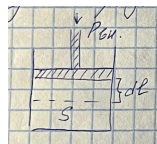 Pвн.
dl
S